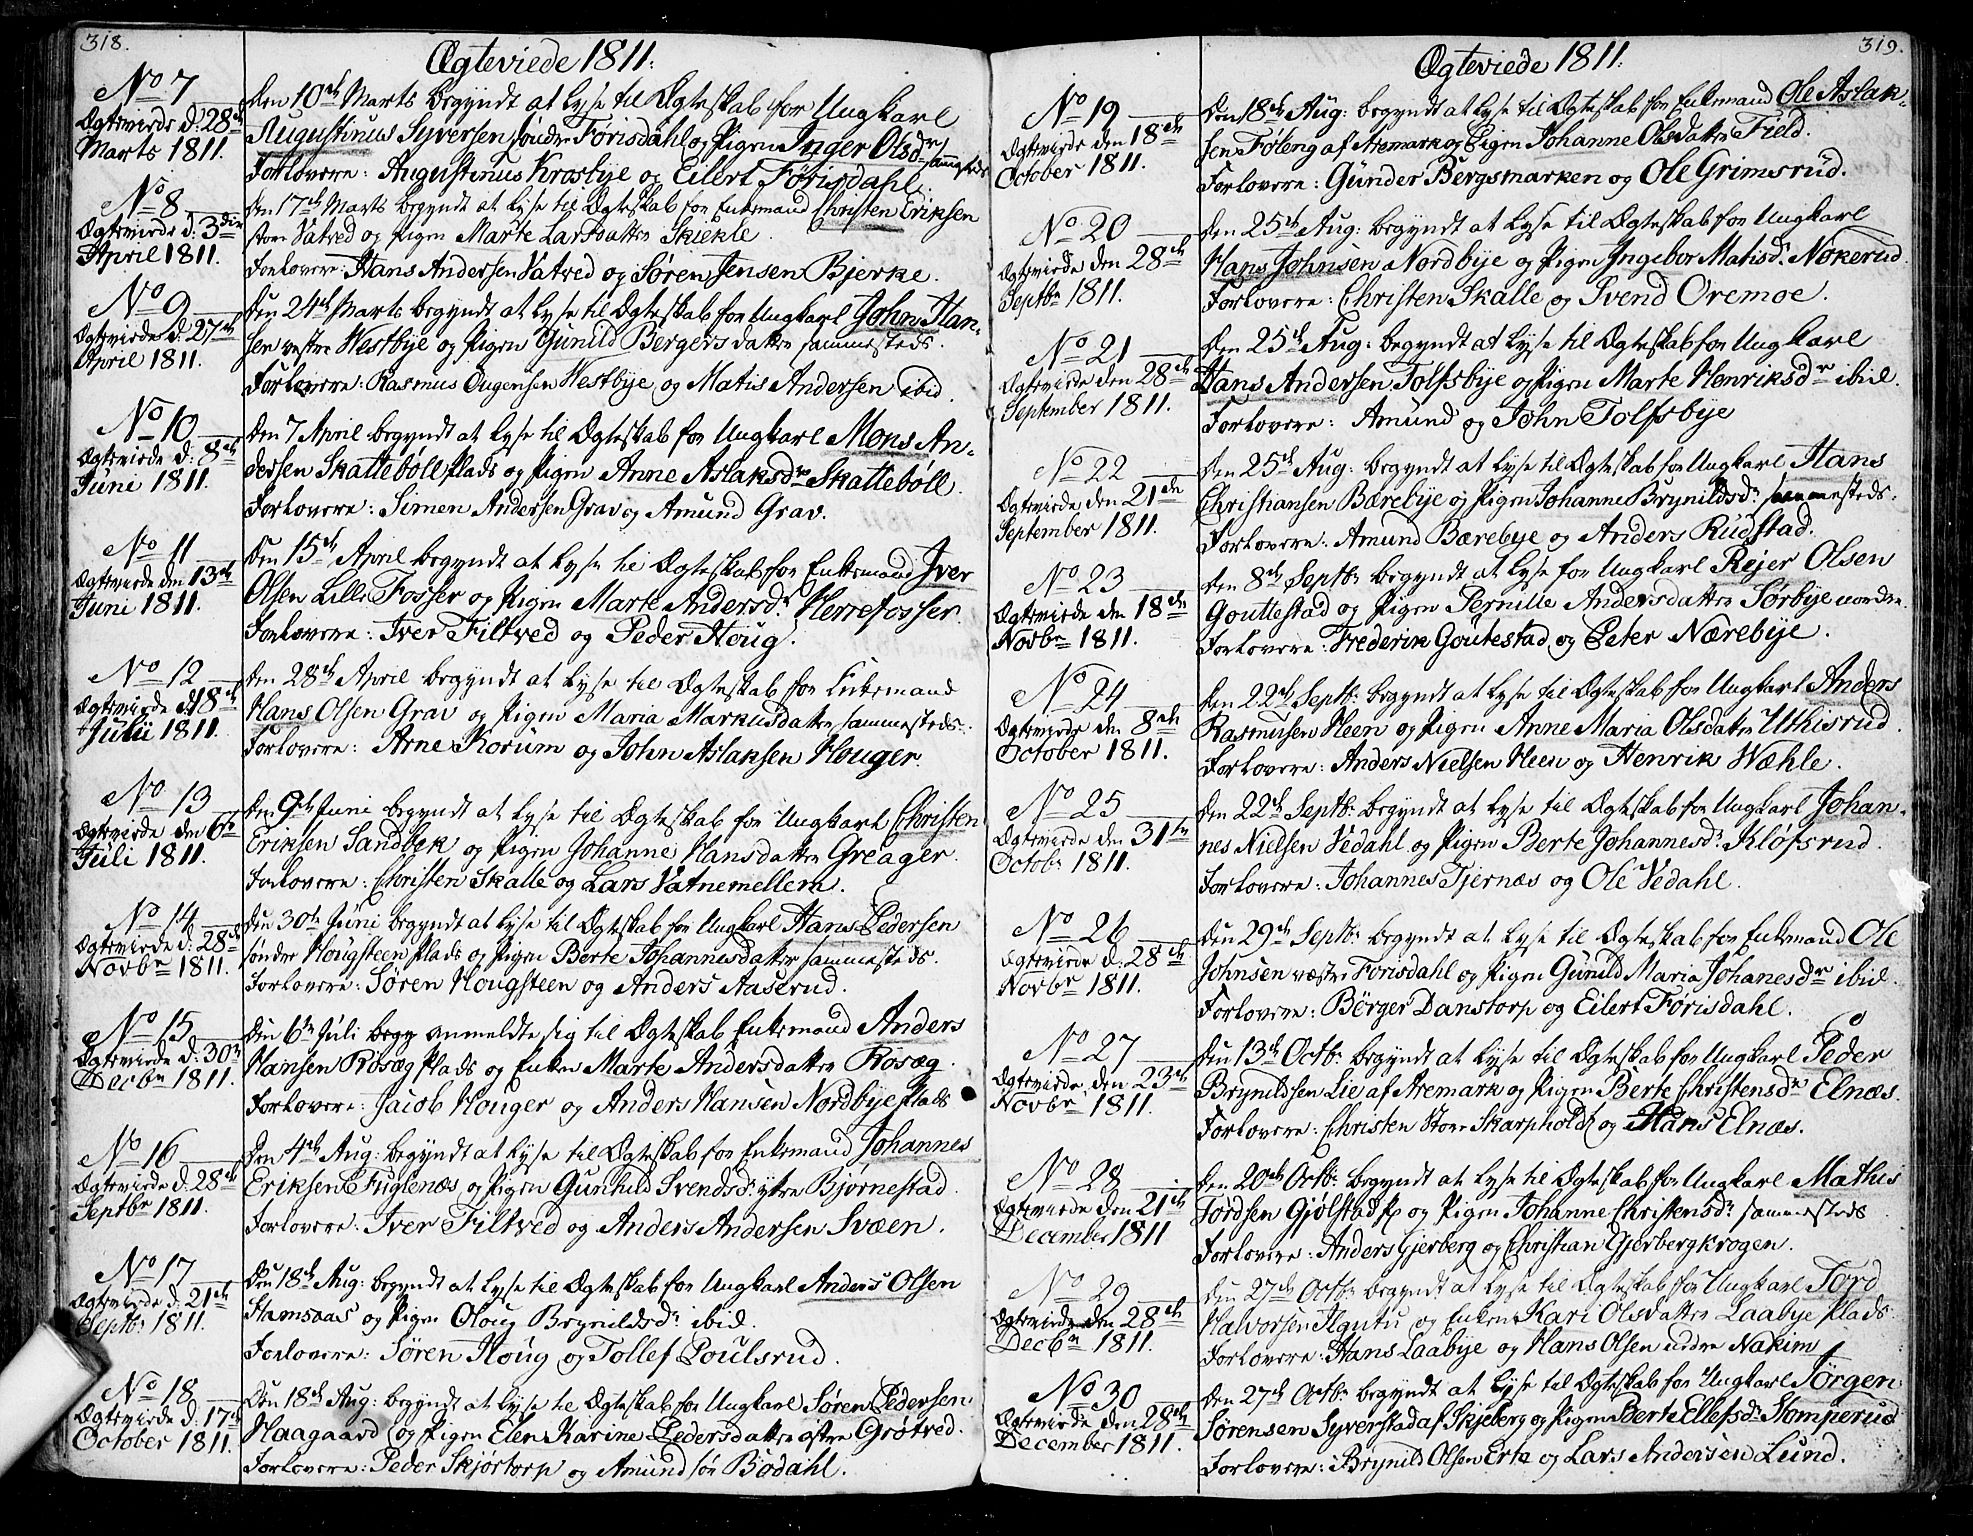 318.
Ægteviede 1811:
No 7
Ægteviede d: 28de
Marts 1811.
Den 10de Marts begyndt at lyse til Ægteskab for Ungkarl
Augustinus Syversen søndre Förisdahl og Pigen Inger Olsdr samsteds
Forlovere: Augustinus Krosbye og Eilert Förisdahl.
No 8
Ægteviede d: 3die
April 1811.
Den 17de Marts begyndt at lyse til Ægteskab for Enkemand Christen Eriksen
store Vatved og Pigen Marte Larsdatter Skiekle
Forlovere: Hans Andersen Vatved og Sören Jensen Bjerke.
No 9
Ægteviede d: 27de
April 1811.
Den 24de Marts begyndt at lyse til Ægteskab for Ungkarl John Han-
sen vestre Westbye og Pigen Gunild Bergersdatter sammesteds.
Forlovere: Rasmus Ougensen Westbye og Matis Andersen ibid.
No 10
Ægteviede d: 8de
Juni 1811.
Den 7 April begyndt at lyse til Ægteskab for Ungkarl Mons An-
dersen Skatteböll Plads og Pigen Anne Aslaksdr Skatteböll.
Forlovere: Simen Andersen Grav og Amund Grav.
No 11
Ægteviede den 13de
Juni 1811.
Den 15de April begyndt at lyse til Ægteskab for Enkemand Iver
Olsen Lille Fosser og Pigen Marte Andersdr Herrefosser.
Forlovere: Iver Filtved og Peder Houg.
No 12
Ægteviede d: 18de
Julii 1811.
Den 28de April begyndt at lyse til Ægteskab for Enkemand
Hans Olsen Grav og Pigen Maria Markusdatter sammesteds.
Forlovere: Arne Korum og John Aslaksen Houger.
No 13
Ægteviede den 6te
Juli 1811.
Den 9de Juni begyndt at lyse til Ægteskab for Ungkarl Christen
Eriksen Sandbek og Pigen Johanne Hansdatter Greager.
Forlovere: Christen Skalle og Lars Vatnemellem.
No 14
Ægteviede d: 28de
Novbr 1811.
Den 30te Juni begyndt at lyse til Ægteskab for Ungkarl Hans Pedersen
søndre Hougsteen Plads og Pigen Berte Johannesdatter sammesteds.
Forlovere: Sören Hougsteen og Anders Aaserud.
No 15
Ægteviede d: 30te
Decbr 1811.
Den 6te Juli begy anmeldte sig til Ægteskab Enkemand Anders
Hansen Rosæg Plads og Enken Marte Andersdatter Rosæg.
Forlovere: Jacob Houger og Anders Hansen Nordbye Plads
No 16
Ægteviede d. 28de
Septbr 1811.
Den 4de Aug: begyndt at lyse til Ægteskab for Enkemand Johannes
Eriksen Fuglenæs og Pigen Gunhild Svendsdr ytre Björnestad.
Forlovere: Iver Filtved og Anders Andersen Svæen.
No 17
Ægteviede d: 21de
Septbr 1811.
Den 18de Aug: begyndt at lyse til Ægteskab for Ungkarl Anders Olsen
Stamsaas og Pigen Oloug Brynildsdr ibid.
Forlovere: Sören Houg og Tollef Poulsrud.
No 18
Ægteviede d: 17de
October 1811.
Den 18de Aug: begyndt at lyse til Ægteskab for Ungkarl Sören Pedersen
Haagaard og Pigen Elen Karine Pedersdatter østre Grötved.
Forlovere: Peder Skjortorp og Amund sör Bödahl.
319.
Ægteviede 1811:
No 19
Ægteviede den 18de
October 1811.
Den 18de Aug: begyndt at lyse til Ægteskab for Enkemand Ole Aslak-
sen Föleng af Aremark og Pigen Johanne Olsdatter Field.
Forlovere: Günder Bergsmarken og Ole Grimsrud.
No 20
Ægteviede den 28de
Septbr 1811.
Den 25de Aug: begyndt at lyse til Ægteskab for Ungkarl
Hans Johnsen Nordbye og Pigen Ingebor Matisdr Nokerud.
Forlovere: Christen Skalle og Svend Oremoe.
No 21
Ægteviede den 28de
September 1811.
Den 25de Aug: begyndt at lyse til Ægteskab for Ungkarl
Hans Andersen Tolfsbye og Pigen Marte Henriksdr ibid.
Forlovere: Amund og John Tolfsbye
No 22
Ægteviede den 21de
September 1811.
Den 25de Aug: begyndt at lyse til Ægteskab for Ungkarl Hans
Christiansen Bærebye og Pigen Johanne Brynildsdr sammesteds.
Forlovere: Amund Bærebye og Anders Rüdstad.
No 23
Ægteviede den 18de
Novbr 1811.
Den 8de Septbr begyndt at lyse for Ungkarl Rejer Olsen
Gouttestad og Pigen Pernille Andersdatter Sörbye nordre.
Forlovere: Frederik Goutestad og Peter Nærebye.
No 24
Ægteviede den 8de
October 1811.
Den 22de Septbr begyndt at lyse til Ægteskab for Ungkarl Anders
Rasmusen Heen og Pigen Anne Maria Olsdatter Uthisrud.
Forlovere: Anders Nielsen Heen og Henrik Wæhle.
No 25
Ægteviede den 31te
Octobr 1811.
Den 22de Septbr begyndt at lyse til Ægteskab for Ungkarl Johan-
nes Nielsen Vedahl og Pigen Berte Johannesdr Klöfsrud.
Forlovere: Johannes Tjernæs og Ole Vedahl.
No 26
Ægteviede d: 28de
Novbr 1811.
Den 29de Septbr begyndt at lyse til Ægteskab for Enkemand Ole
Johnsen væstre Forisdahl og Pigen Gunild Maria Johanesdr ibid.
Forlovere: Börger Danstorp og Eilert Förisdahl.
No 27
Ægteviede den 23de
Novbr 1811.
Den 13de Octbr begyndt at lyse til Ægteskab for Ungkarl Peder
Brynildsen Lie af Aremark og Pigen Berte Christensdr Elnæs.
Forlovere: Christen Store Skarpholdt og Hans Elnæs.
No 28
Ægteviede den 21de
December 1811
Den 20de Octbr begyndt at lyse til Ægteskab for Ungkarl Mathis
Tordsen Gjölstad Pl og Pigen Johanne Christensdr sammesteds
Forlovere: Anders Gjerberg og Christian Gjerbergkrogen.
No 29
Ægteviede den 28de
Decbr 1811.
Den 27de Octbr begyndt at lyse til Ægteskab for Ungkarl Tord
Halvorsen Agutu og Enken Kari Olsdatter Laabye Plads.
Forlovere: Hans Laabye og Hans Olsen nidre Nakim
No 30
Ægteviede den 28de
December 1811.
Den 27de Octbr begyndt at lyse til Ægteskab for Ungkarl Jörgen
Sörensen Syverstad af Skjeberg og Pigen Berte Ellefsdr Stomperud
Forlovere: Brynild Olsen Erte og Lars Andersen Lund.